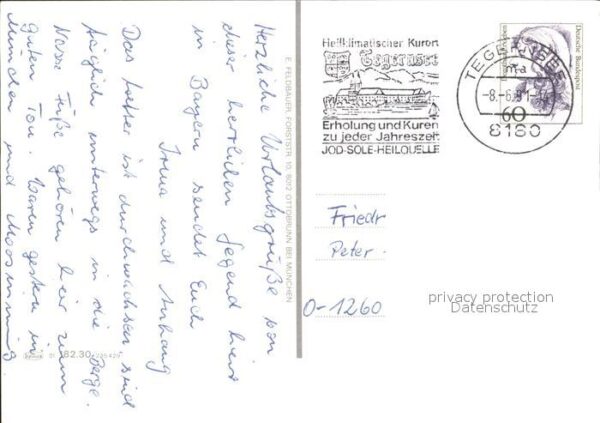 Herzliche Urlaubsgrüße von
dieser herrlichen Gegend hier
in Bayern sendet Euch
Irma und Anhang
Das Wetter ist durchwachsen sind
täglich unterwegs in die Berge.
Nasse Füße gehören hier zum
guten Ton. Waren gestern in
München und
E. FELDBAUER, FORSTSTR. 10, 8012 OTTOBRUNN BEI MÜNCHEN
82.30
Heilklimatischer Kurort
Tegernsee
Erholung und Kuren
zu jeder Jahreszeit
JOD-SOLE-HEILQUELLE
TEGERNSEE
ma
-8.-6.91
8180
60
Deutsche Bundespost
Friedr
Peter
O-1260
privacy protection
Datenschutz